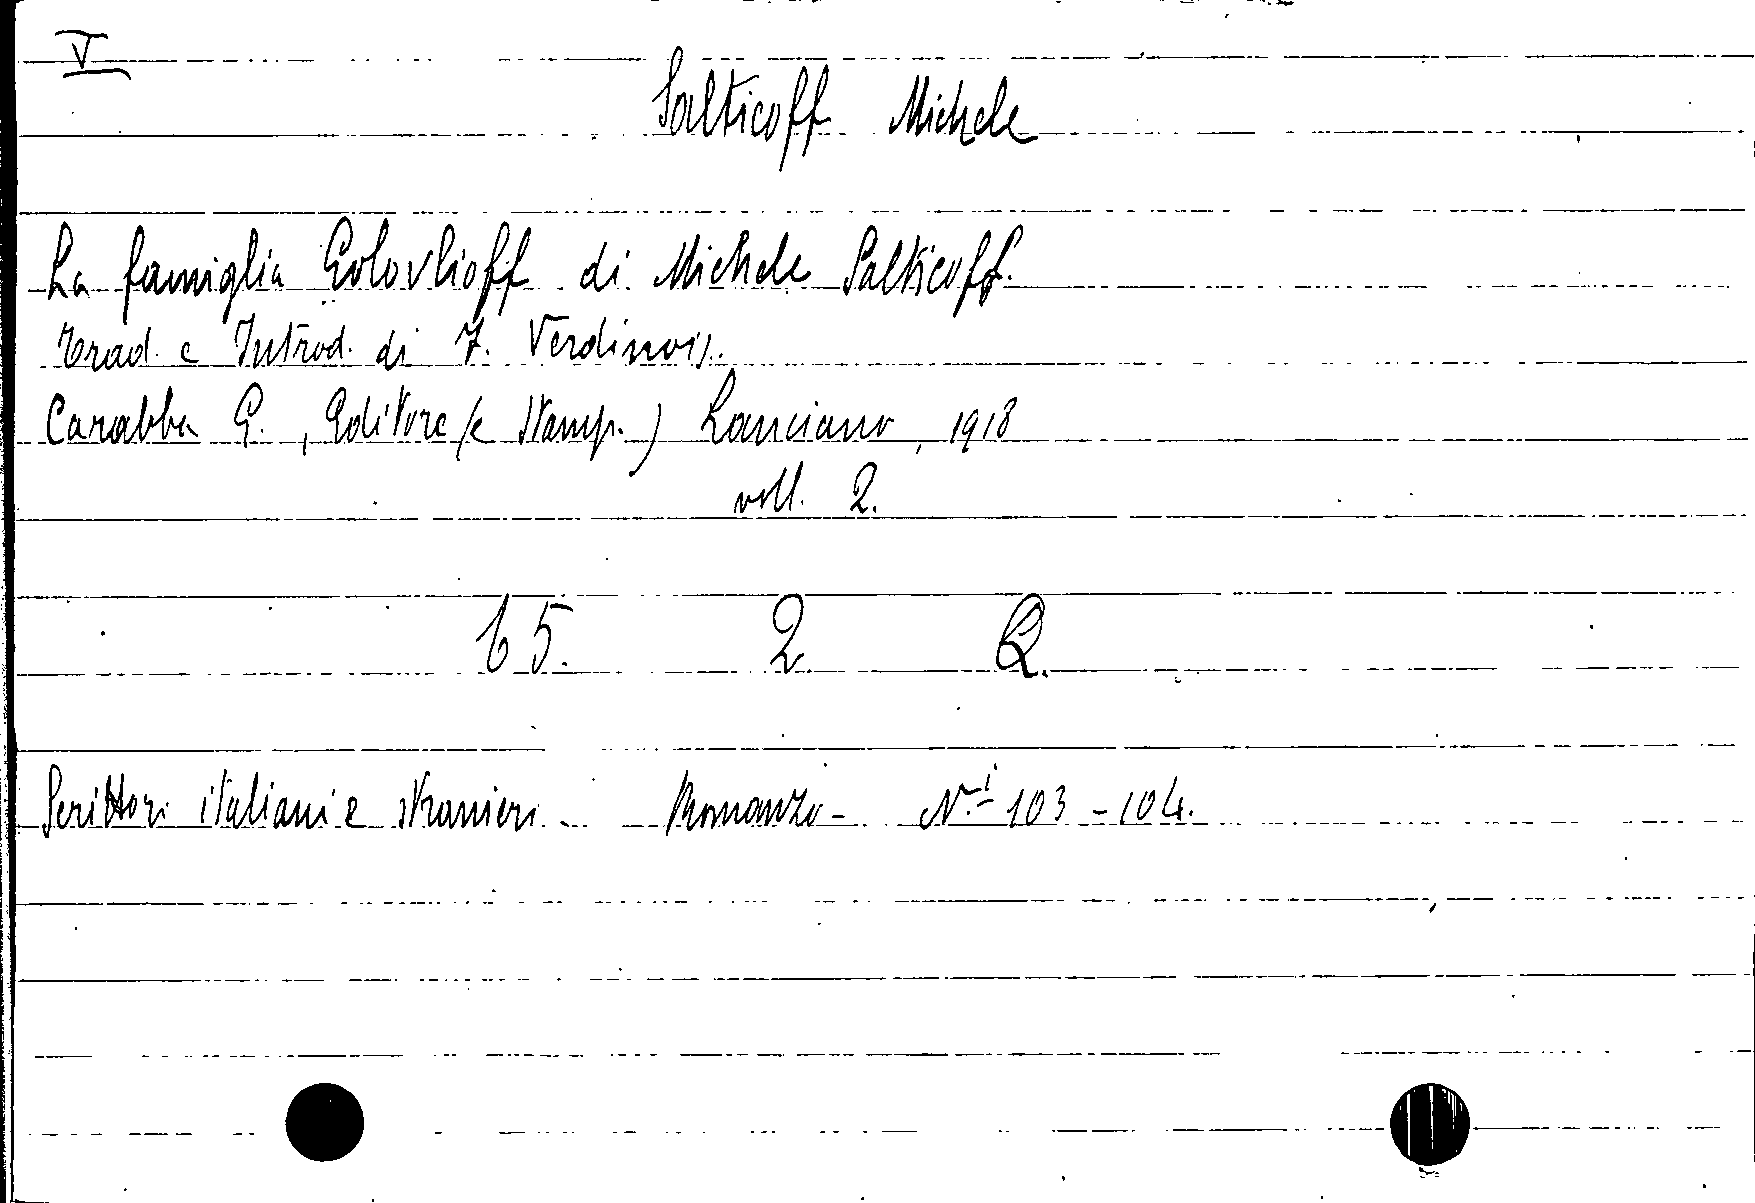 V
Salticoff Michele
La famiglia Golovlioff di Michele Salticoff.
Trad. e Introd. di F. Verdinois.
Carabba G., Editore (e Stamp.) Lanciano, 1918
voll. 2.
65. 2 Q.
Scrittori italiani e stranieri - Romanzo - N.i 103-104.